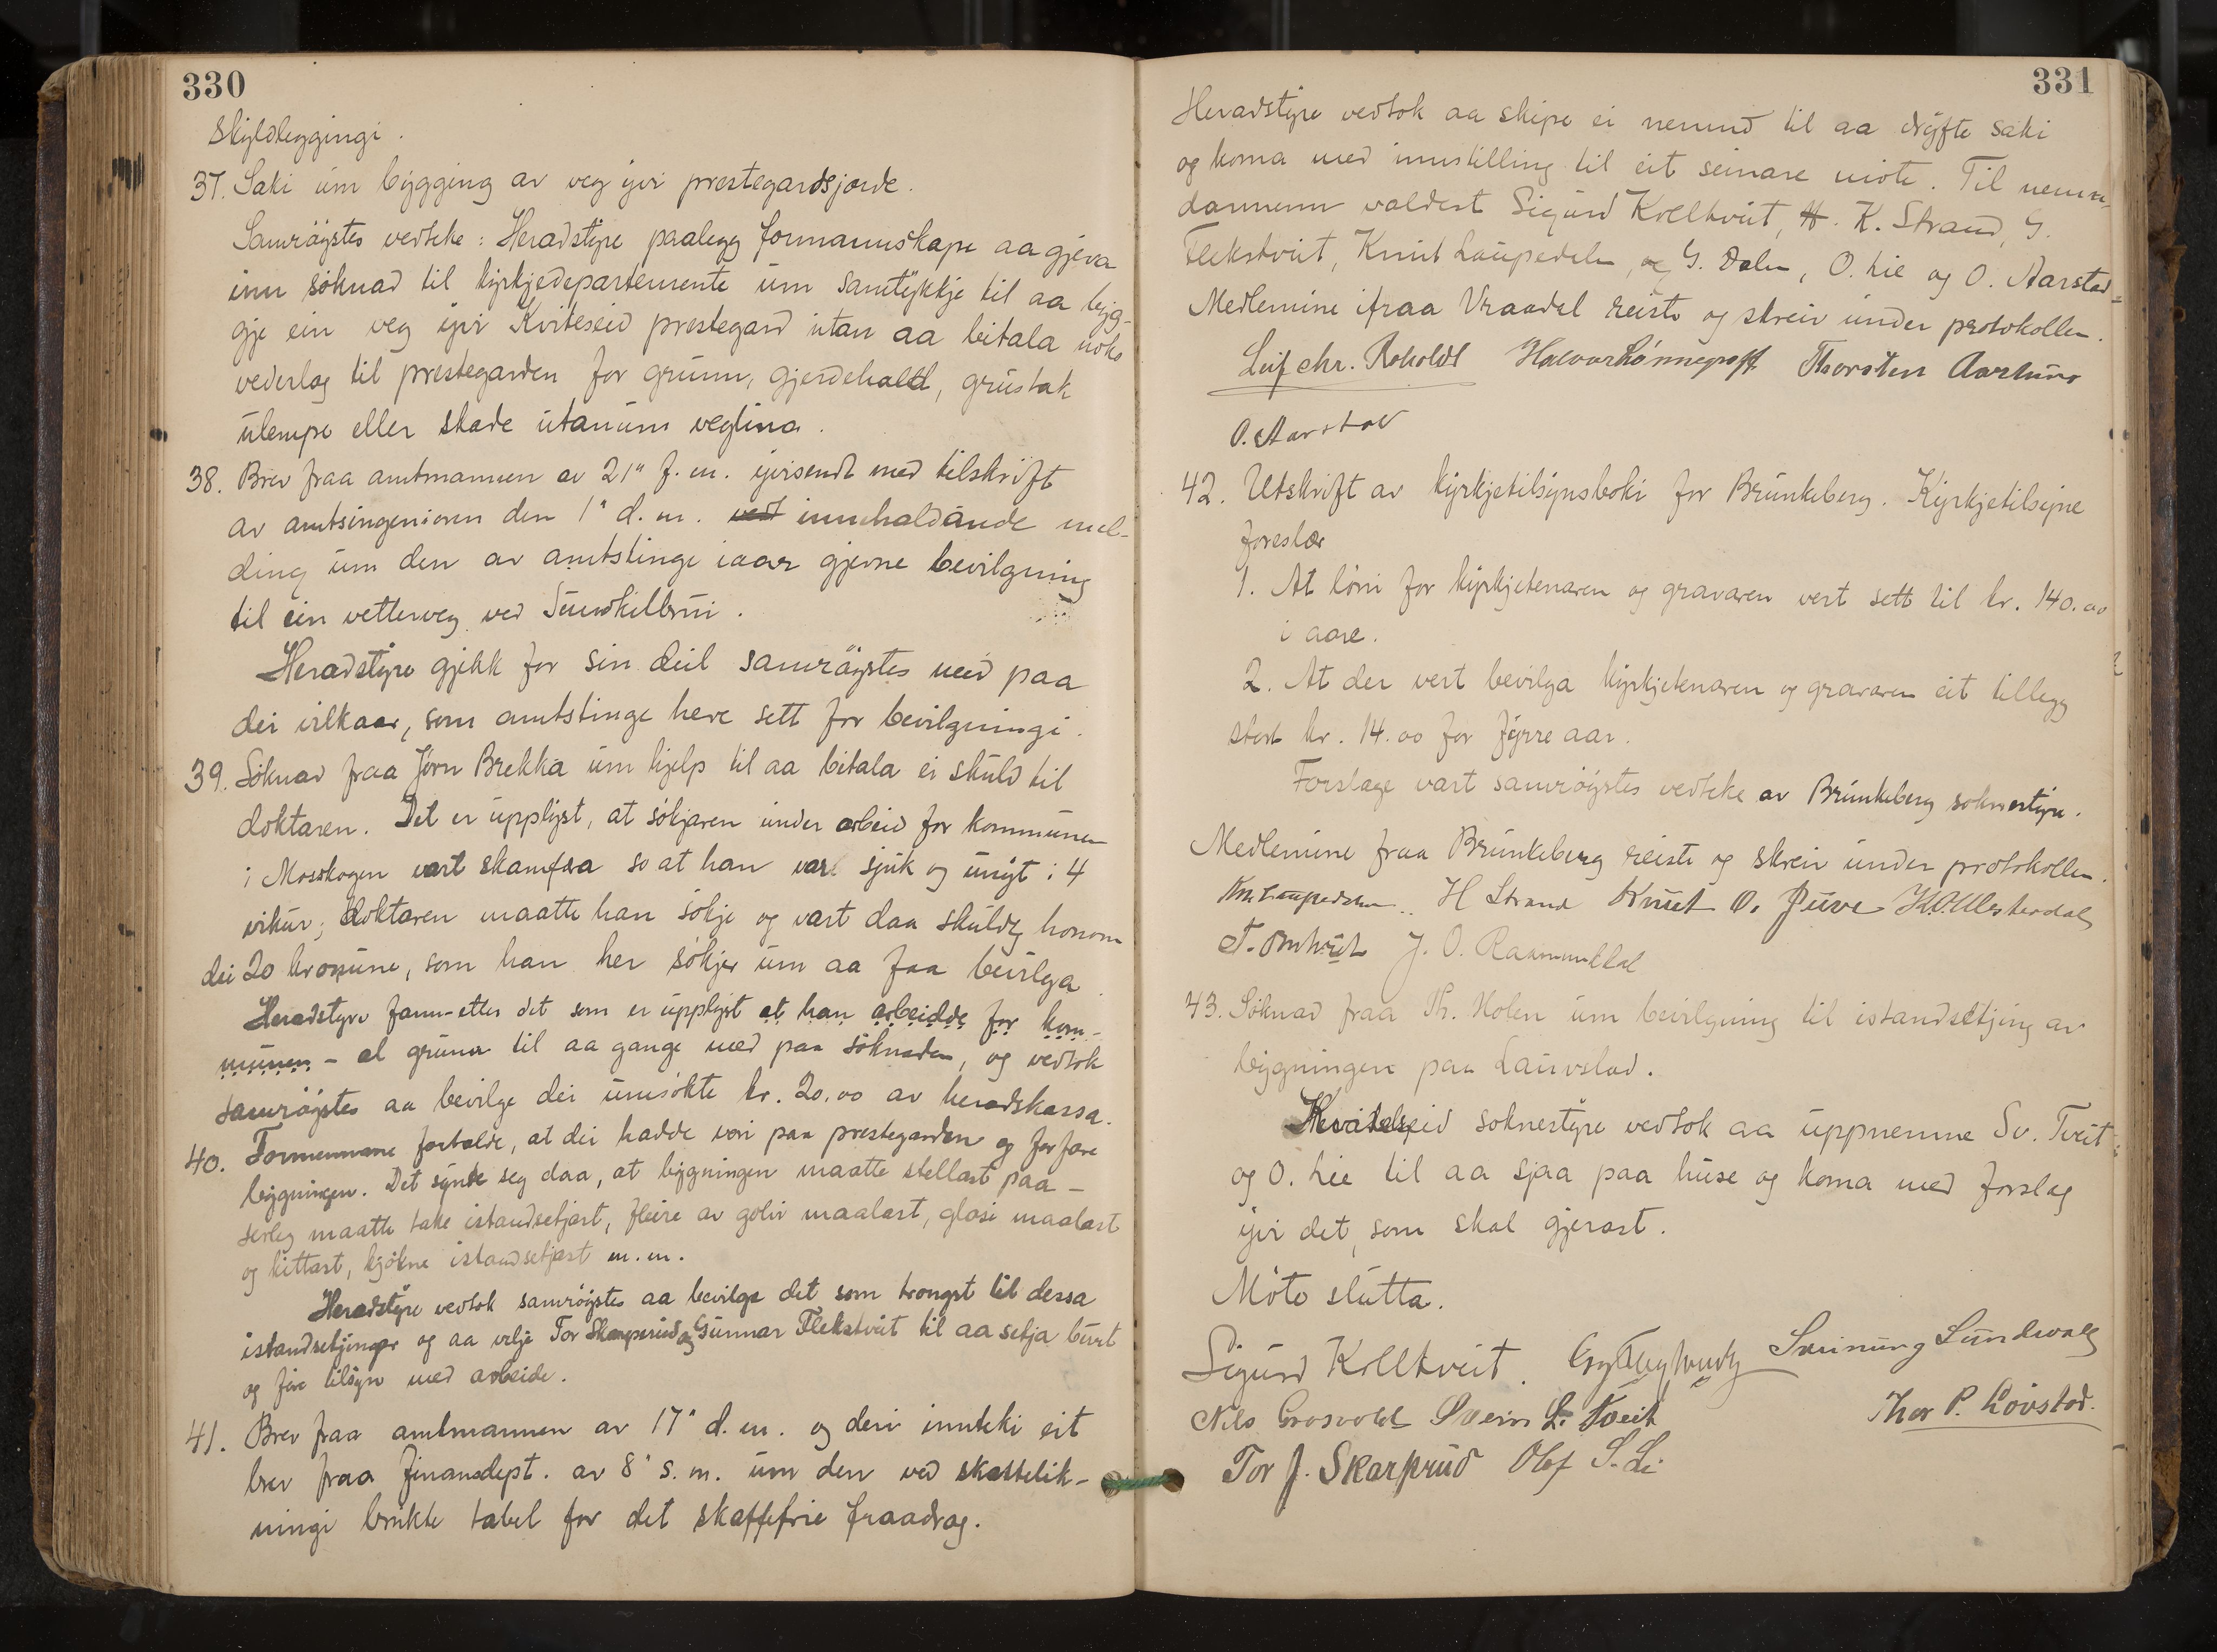 330
Skyldleggingi.
37. Saki um bygging av veg yvi prestegardsjorde.
Samröystes vedteke: Heradstyre paalegg formannskape aa gjeva
inn söknad til kyrkjedepartemente um samtykkje til aa bygg-
gje ein veg yvi Kviteseid prestegard utan aa betala noko
vederlag til prestegarden for grunn, gjerdehald, grustak
ulempe eller skade utanum veglina.
38. Brev fraa amtmannen av 21" f. m. yvisendt med tilskrift
av amtsingeniören den 1" d. m. innehaldande mel-
ding um den av amtstinge iaar gjevne bevilgning
til ein vetterveg ved Sundkilbrui.
Heradstyre gjekk for sin deil samröystes med paa
dei vilkaar, som amtstinge heve sett for bevilgningi.
39. Söknad fraa Jörn Brekka um hjelp til aa betala ei skuld til
doktaren. Det er upplyst, at sökjaren under arbeid for kommunen
i Moskogen vart skamfara so at han vart sjuk og unyt i 4
vikur; doktaren maatte han sökje og vart daa skuldig honom
dei 20 kronune, som han her sökjer um aa faa bevilga.
Heradstyre fann - etter det som er upplyst at han arbeidde for kom-
munen - at grunn til aa gange med paa söknaden, og vedtok
samröystes aa bevilge dei umsökte kr. 20.00 av heradskassa.
40. Formennane fortalde, at dei hadde vori paa prestegarden og forfare
bygningen. Det synte seg daa, at bygningen maatte stellast paa -
serleg maatte take istandsetjast, fleire av golvi maalast, glasi maalast
og kittast, kjökne istandsetjast m. m.
Heradstyre vedtok samröystes aa bevilge det som trongst til dessa
istandsetjingar og aa velje Tor Skarprud og Gunnar Flekstveit til aa setja burt
og före tilsyn med arbeide.
41. Brev fraa amtmannen av 17" d. m. og deri innteki eit
brev fraa finansdept. av 8" s. m. um den ved skattelik-
ningi brukte tabel for det skattefrie fraadrag.
331
Heradstyre vedtok aa skipe ei nemnd til aa dryfte saki
og koma med innstilling til eit seinare möte. Til nemn-
darmenn valdest Sigurd Kolltveit, H. K. Strand, G.
Flekstveit, Knut Laupedalen, og G. Dalen, O. Lie og O. Aarstad
Medlemine ifraa Vraadal reiste og skreiv under protokollen.
Leif Chr. Roholdt Halvor Lönnegraff Thorsten Aarhuus
O. Aarstad
42. Utskrift av kyrkjetilsynsboki for Brunkeberg. Kyrkjetilsyne
foreslær
1. At löni for kyrkjetenaren og gravaren vert sett til kr. 140.00
i aare.
2. At der vert bevilga kyrkjetenaren og gravaren eit tillegg
stort kr. 14.00 for fyrre aar.
Forslage vart samröystes vedteke av Brunkeberg soknestyre.
Medlemine fraa Brunkeberg reiste og skreiv under protokollen.
Kn. Laupedalen H Strand Knut O. Juve
J. O.
43. Söknad fraa Th. Holen um bevilgning til istandsetjing av
bygningen paa Lauvstad.
Kviteseid soknestyre vedtok aa uppnemne Sv. Tveit
og O. Lie til aa sjaa paa huse og koma med forslag
yvi det, som skal gjerast.
Möte slutta.
Sigurd Kolltveit. Sveinung Sundvaag
Nils Grosvold Svein L. Tveit Thor P. Lövstad.
Tor J. Skarprud Olaf S. Li